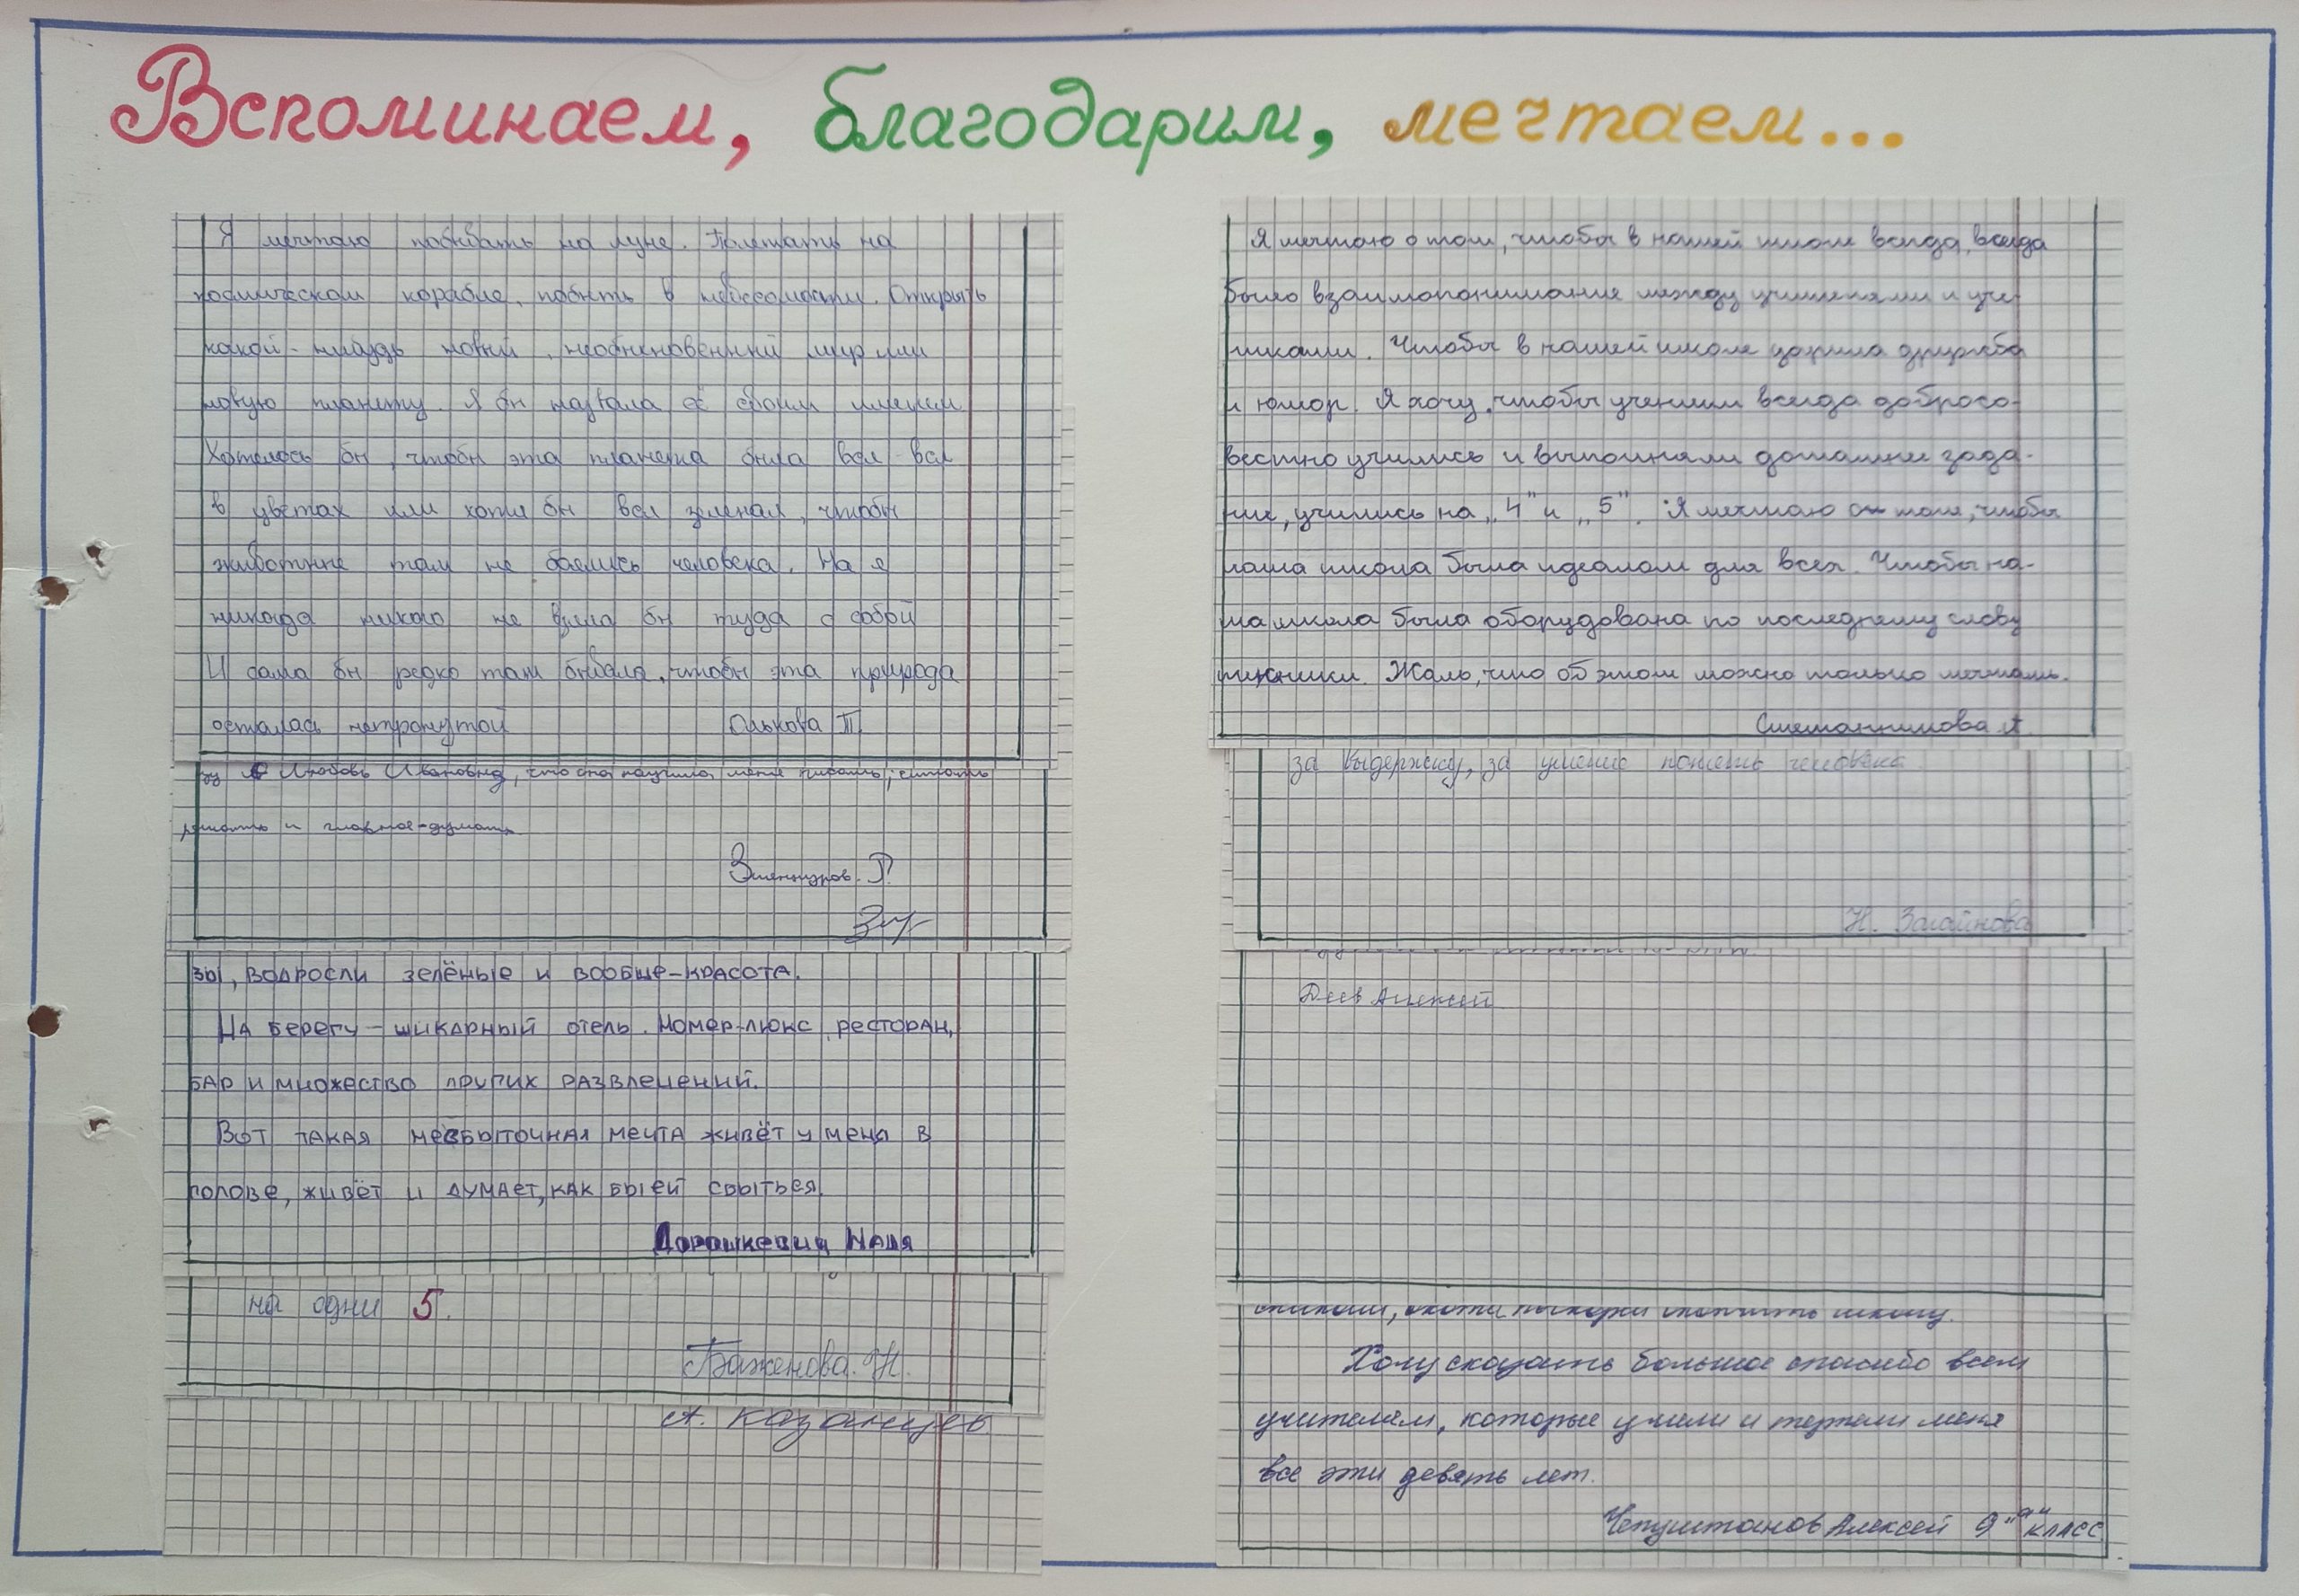 Вспоминаем, благодарим, мечтаем...
Я мечтаю побывать на луне. Полетать на
космическом корабле, побыть в невесомости. Открыть
какой-нибудь новый, необыкновенный мир или
новую планету. Я бы назвала её своим именем
Хотелось бы, чтобы эта планета была вся-вся
в цветах или хотя бы вся зеленая, чтобы
животные там не боялись человека. Но я
никогда никого не взяла бы туда с собой
И сама бы редко там бывала, чтобы эта природа
осталась нетронутой Юлькова Т.
Любовь Ивановна, что она научила меня писать, считать
решать и главное-думать
Р.
зы, водросли зелёные и вообще-красота.
На берегу - шикарный отель. Номер-люкс, ресторан,
бар и множество других развлечений.
Вот такая несбыточная мечта живёт у меня в
голове, живёт и думает, как бы ей сбыться.
Дорошкевич Надя
на одни 5.
Баженова. Н.
А. Казанцев
Я мечтаю о том, чтобы в нашей школе всегда, всегда
было взаимопонимание между учителями и уче-
никами. Чтобы в нашей школе царила дружба
и юмор. Я хочу, чтобы ученики всегда добросо-
вестно учились и выполняли домашние зада-
ния, учились на „4" и „5". Я мечтаю о том, чтобы
наша школа была идеалом для всех. Чтобы на-
ша школа была оборудована по последнему слову
техники. Жаль, что об этом можно только мечтать.
Сметанникова А
за выдержку, за умение понять человека.
Н. Загайнова
Деев Алексей
школу.
Хочу сказать большое спасибо всем
учителям, которые учили и терпели меня
все эти девять лет.
Чепуштанов Алексей 9"а" класс